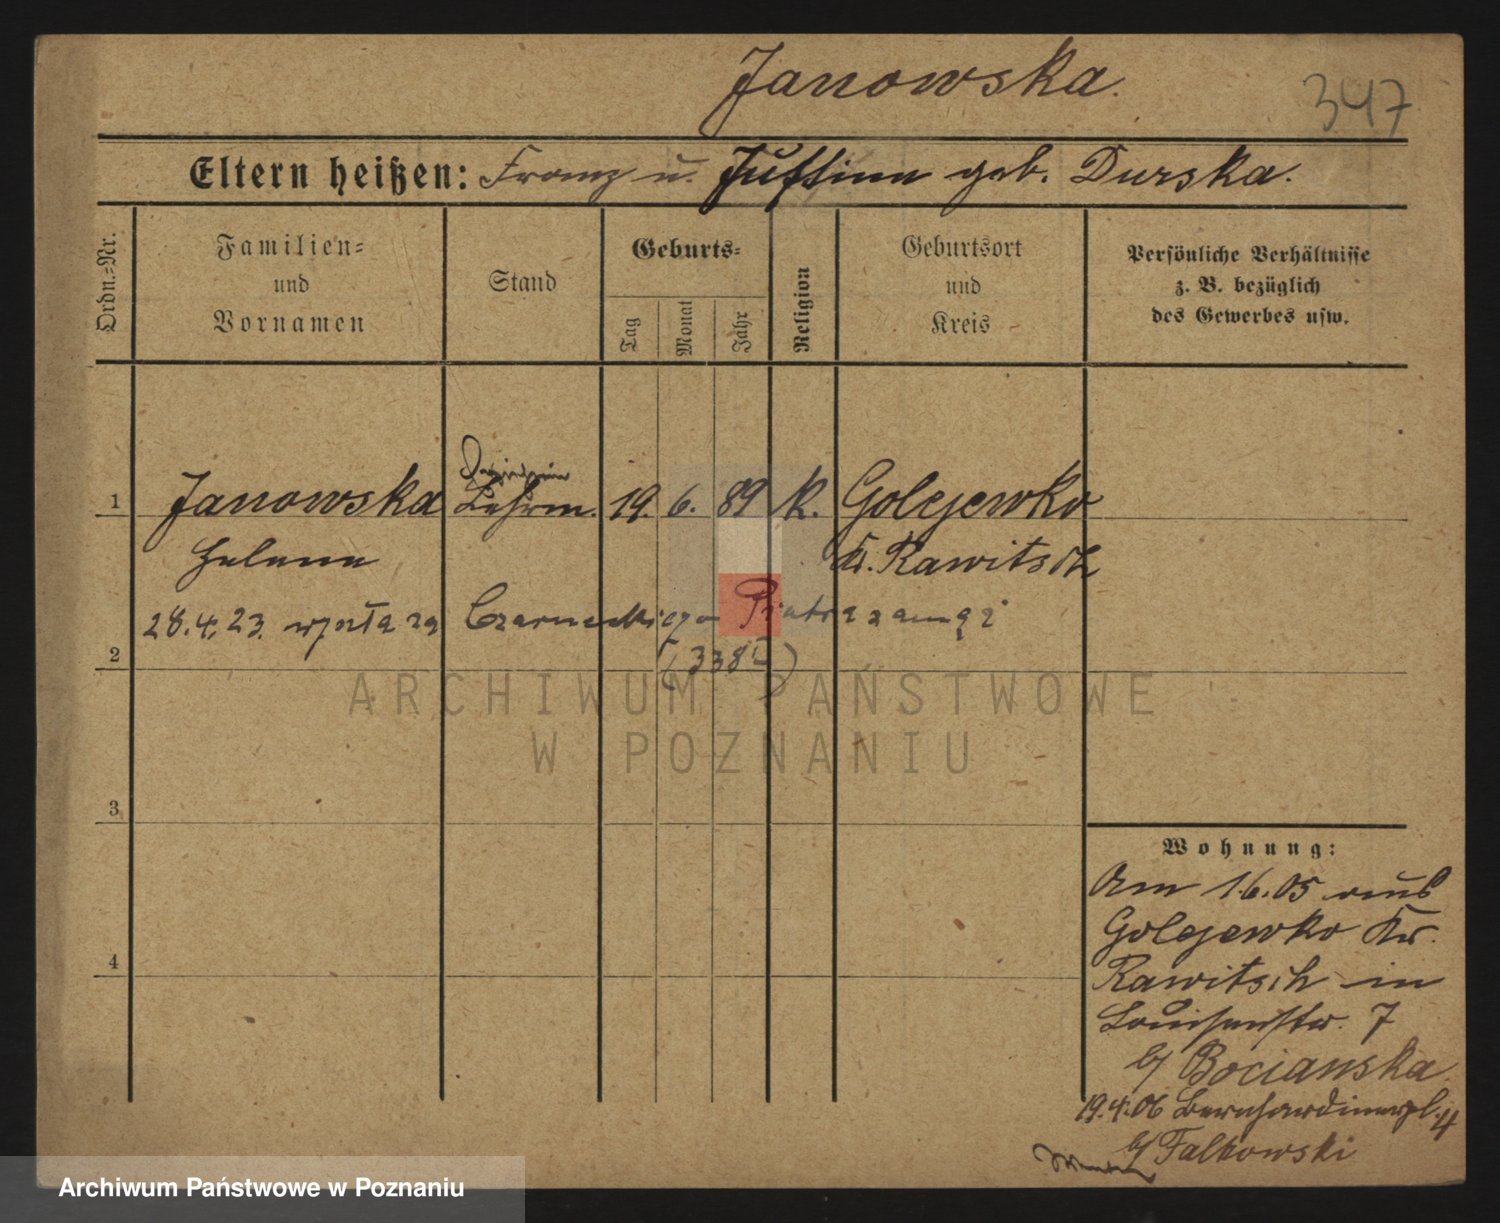 Janowska.
347
Eltern heißen: Franz u. Justine geb. Durska.
Ordn.-Nr.
Familien-
und
Vornamen
Stand
Geburts-
Tag
Monat
Jahr
Religion
Geburtsort
und
Kreis
Persönliche Verhältnisse
z. B. bezüglich
des Gewerbes usw.
1 Janowska 19. 6. 89 K. Golejewko
Helene Kr. Rawitsch
28.4.23. wyszła za Czarneckiego Piotra zamąż
2
ARCHIWUM PAŃSTWOWE
W POZNANIU
3
4
Wohnung:
Am 1.6.05 aus
Golejewko Kr.
Rawitsch in
Louisenstr. 7
b/ Bocianska
19.4.06 Bernhardinerpl. 4
b/ Falkowski
Archiwum Państwowe w Poznaniu